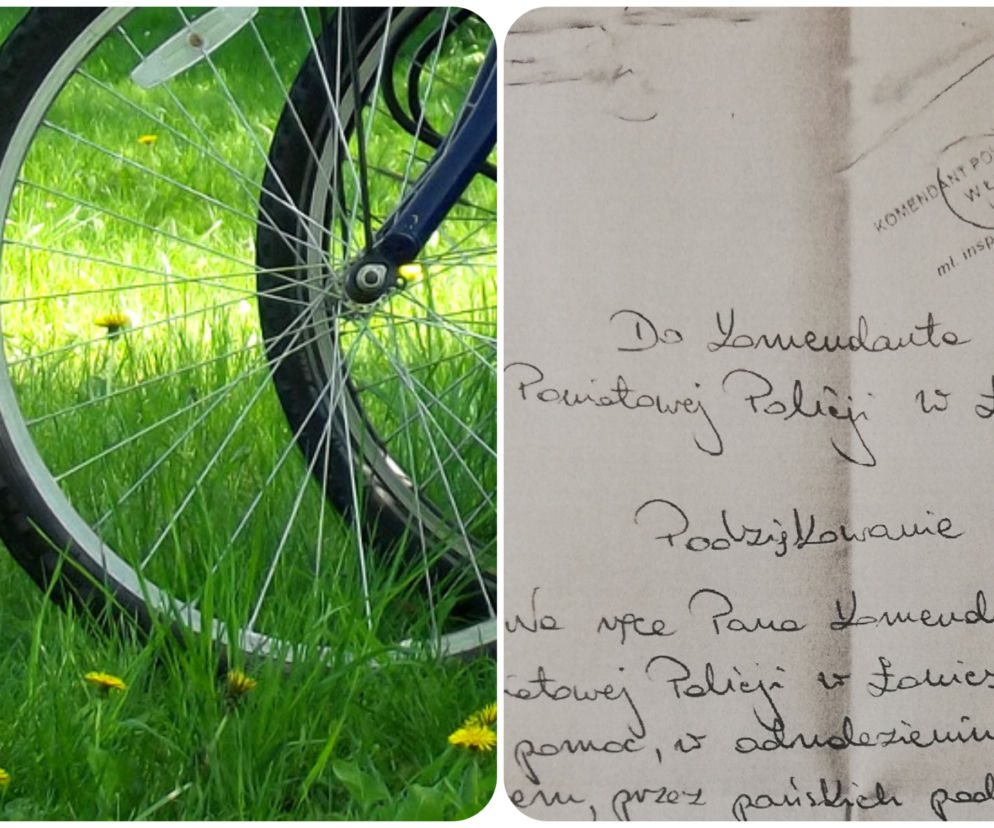 KOMENDANT PO
W Ł
mł. insp
Do Komendanta
Powiatowej Policji w Ł
Podziękowanie
Na ręce Pana Komend
iatowej Policji w Łowics
pomoc, w odnalezieniu
em, przez pańskich pod